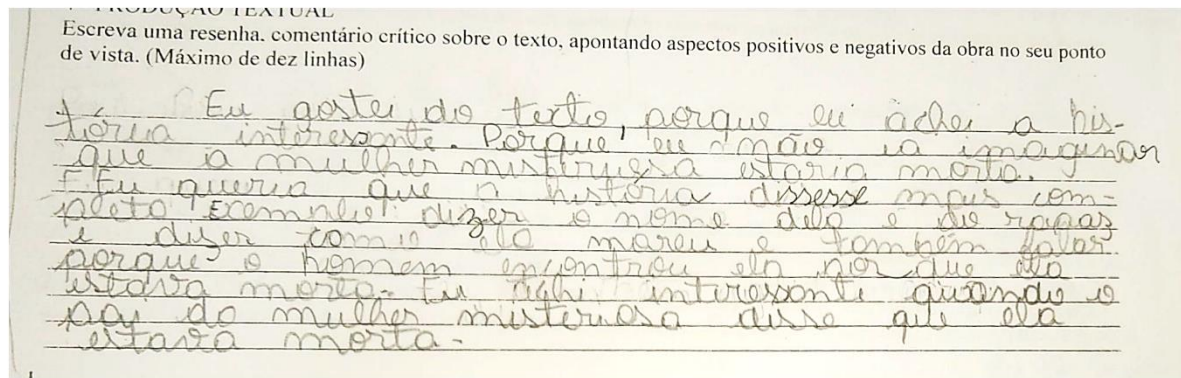 PRODUÇÃO TEXTUAL
Escreva uma resenha, comentário crítico sobre o texto, apontando aspectos positivos e negativos da obra no seu ponto
de vista. (Máximo de dez linhas)
Eu gostei do texto, porque eu achei a his-
tória interessante. Porque, eu não ia imaginar
que a mulher misteriosa estaria morta.
Eu queria que a história dissesse mais com-
pleto Exemplo: dizer o nome dela e do rapas
e diser como ela moreu e também falar
porque o homem encontrou ela por que ela
estava morta. Eu achi interessante quando o
pai do mulher misteriosa disse que ela
estava morta.